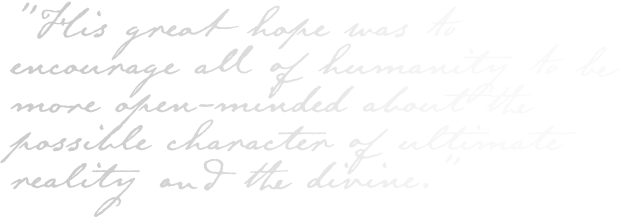 "His great hope was to
encourage all of humanity to be
more open-minded about the
possible character of ultimate
reality and the divine."